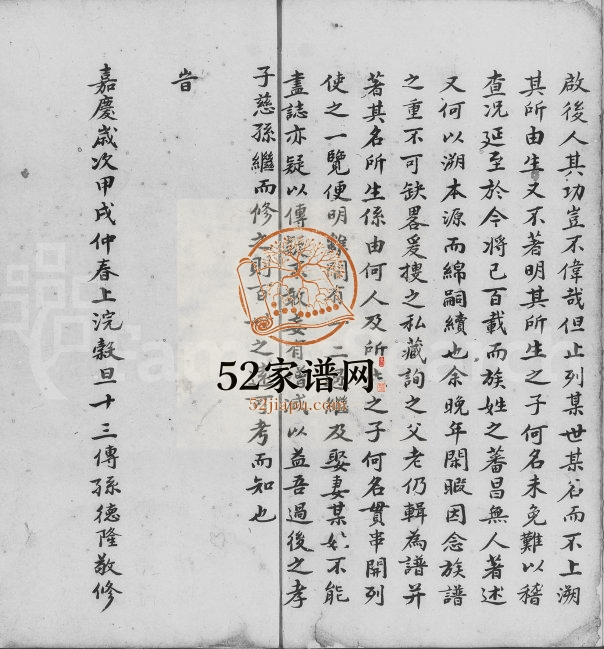 啟後人其功豈不偉哉但止列某世某名而不上溯
其所由生又不著明其所生之子何名未免難以稽
查况延至於今將已百載而族姓之蕃昌無人著述
又何以溯本源而綿嗣續也余晚年閑暇因念族譜
之重不可缺畧爰搜之私藏詢之父老仍輯為譜并
著其名所生係由何人及所 之子何名貫串開列
使之一覽便明 間有一二 繼及娶妻某 不能
盡誌亦疑以傳疑 敢妄有 减以益吾過後之孝
子慈孫繼而修之則百 之 可考而知也
旹
嘉慶歲次甲戌仲春上浣穀旦十三傳孫德隆敬修
52家谱网
52jiapu.com